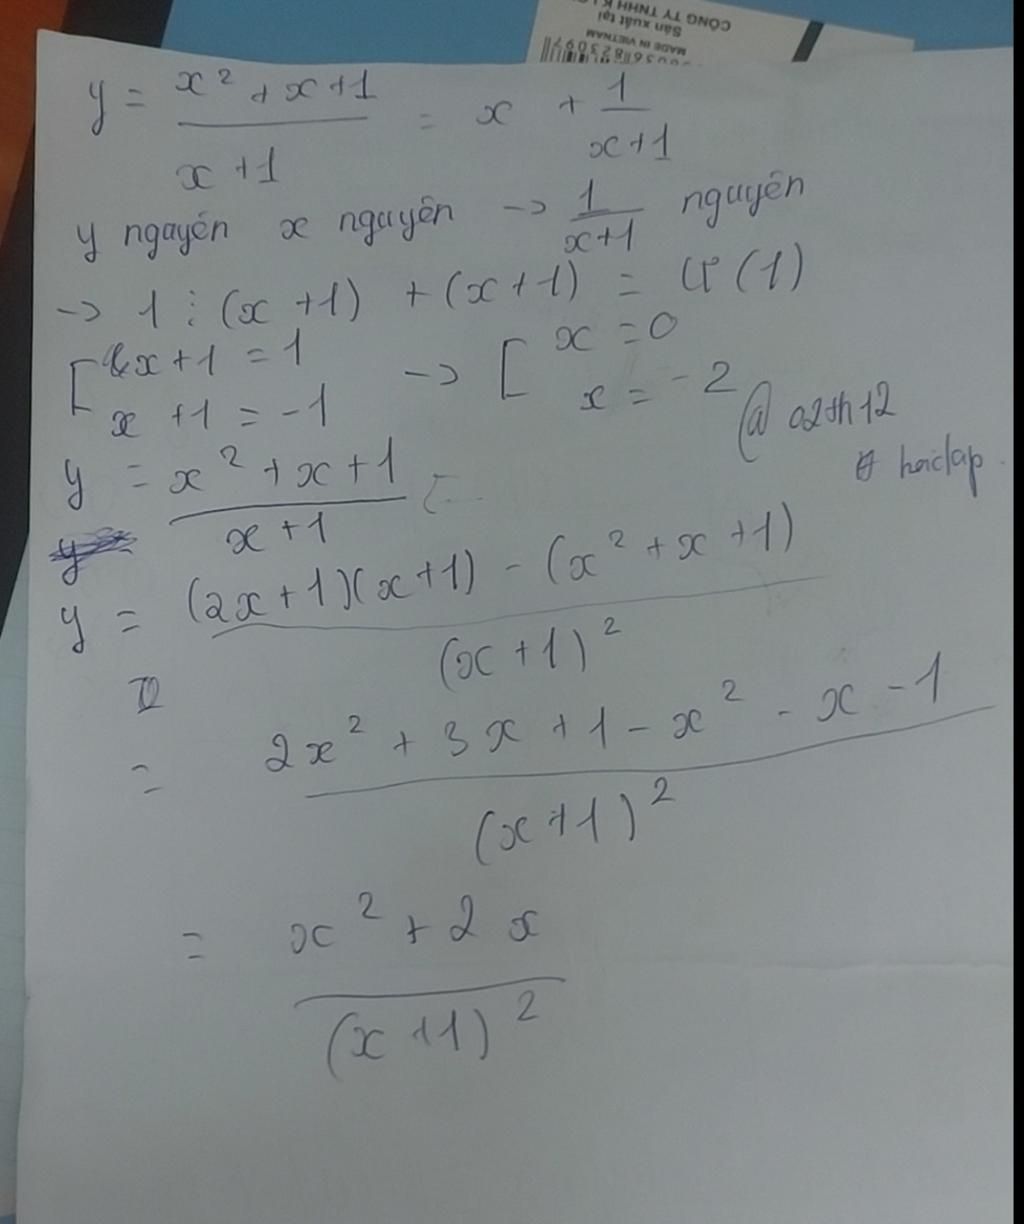 CÔNG TY TNHH K
Sản xuất tại
MADE IN VIETNAM
y = x² + x + 1 / x + 1 = x + 1 / x + 1
y nguyên x nguyên -> 1 / x+1 nguyên
-> 1 ⋮ (x + 1) + (x + 1) = Ư (1)
[ x + 1 = 1 -> [ x = 0
x + 1 = -1 x = -2
@ 02th12
hoclap
y = x² + x + 1 / x + 1
y = (2x + 1)(x + 1) - (x² + x + 1) / (x + 1)²
= 2x² + 3x + 1 - x² - x - 1 / (x + 1)²
= x² + 2x / (x + 1)²